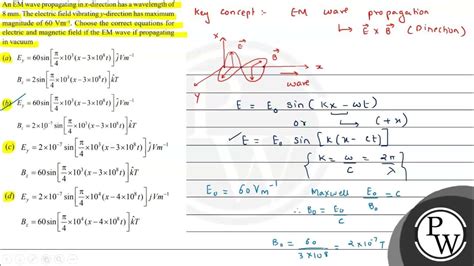 An EM wave propagating in x-direction has a wavelength of
8 mm. The electric field vibrating y-direction has maximum
magnitude of 60 Vm⁻¹. Choose the correct equations for
electric and magnetic field if the EM wave if propagating
in vacuum
(a) E_y = 60 sin[π/4 × 10³(x − 3×10⁸t)] ĵ Vm⁻¹
B_z = 2 sin[π/4 × 10³(x − 3×10⁸t)] k̂T
(b) E_y = 60 sin[π/4 × 10³(x − 3×10⁸t)] ĵ Vm⁻¹
B_z = 2×10⁻⁷ sin[π/4 × 10³(x − 3×10⁸t)] k̂T
(c) E_y = 2×10⁻⁷ sin[π/4 × 10³(x − 3×10⁸t)] ĵ Vm⁻¹
B_z = 60 sin[π/4 × 10³(x − 3×10⁸t)] k̂T
(d) E_y = 2×10⁻⁷ sin[π/4 × 10⁴(x − 4×10⁸t)] ĵ Vm⁻¹
B_z = 60 sin[π/4 × 10⁴(x − 4×10⁸t)] k̂T
Key concept :- EM wave propagation
↳ E⃗ × B⃗ (Direction)
x
E⃗
B⃗
z
Y
wave
E = E₀ sin (kx − ωt)
or ↳ (+x)
E = E₀ sin [k(x − ct)]
{ k = ω/c = 2π/λ }
E₀ = 60 Vm⁻¹
Maxwell E₀/B₀ = c
B₀ = E₀/c
B₀ = 60/3×10⁸ = 2×10⁻⁷ T
PW